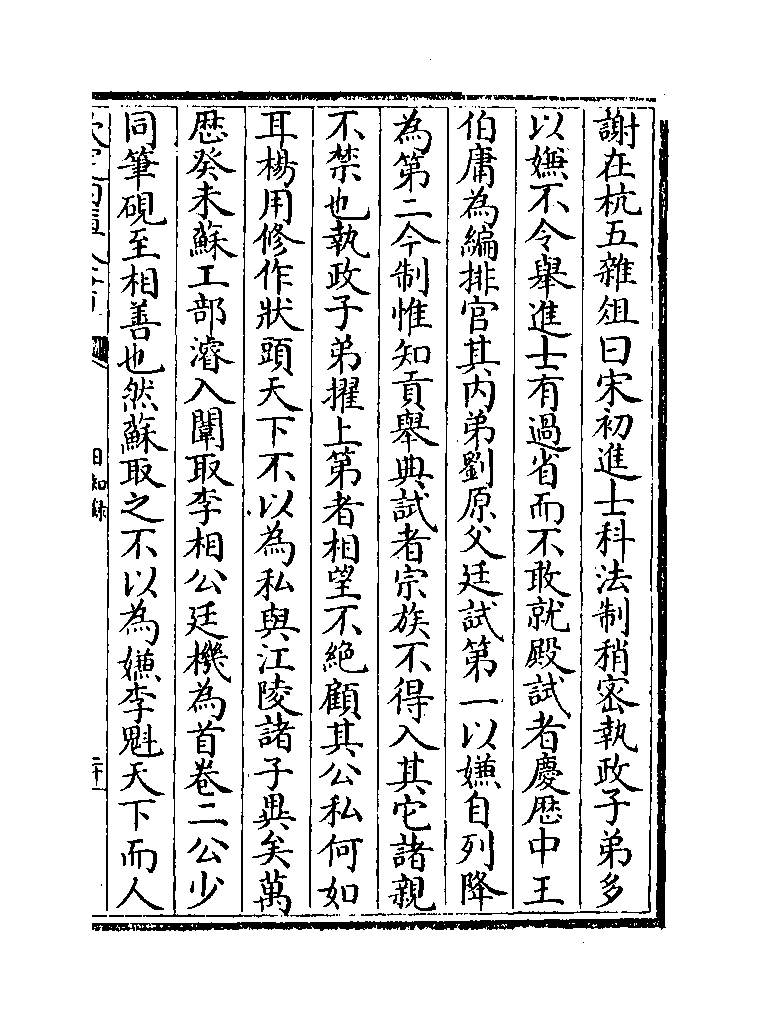 謝在杭五雜俎曰宋初進士科法制稍密執政子弟多
以嫌不令舉進士有過省而不敢就殿試者慶歴中王
伯庸為編排官其内弟劉原父廷試第一以嫌自列降
為第二今制惟知貢舉典試者宗族不得入其它諸親
不禁也執政子弟擢上第者相望不絶顧其公私何如
耳楊用修作狀頭天下不以為私與江陵諸子異矣萬
歴癸未蘇工部濬入闈取李相公廷機為首卷二公少
同筆硯至相善也然蘇取之不以為嫌李魁天下而人
日知録